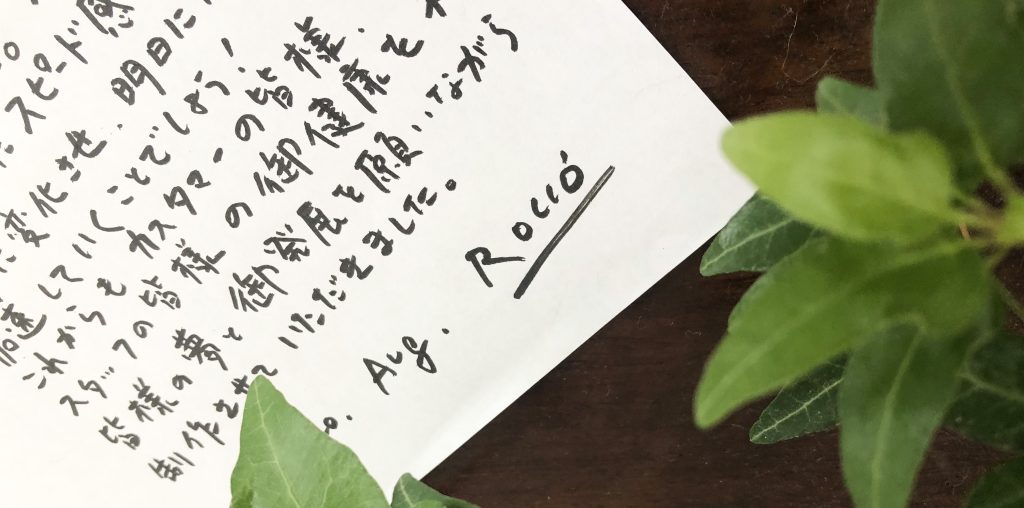 たスピード感
に変化させ、明日に
加速していくことでしょう!
これからもカスタマーの皆様、
スタッフの皆様の御健康と
皆様の夢と御発展を願いながら
制作させていただきました。
Aug.
Roccó